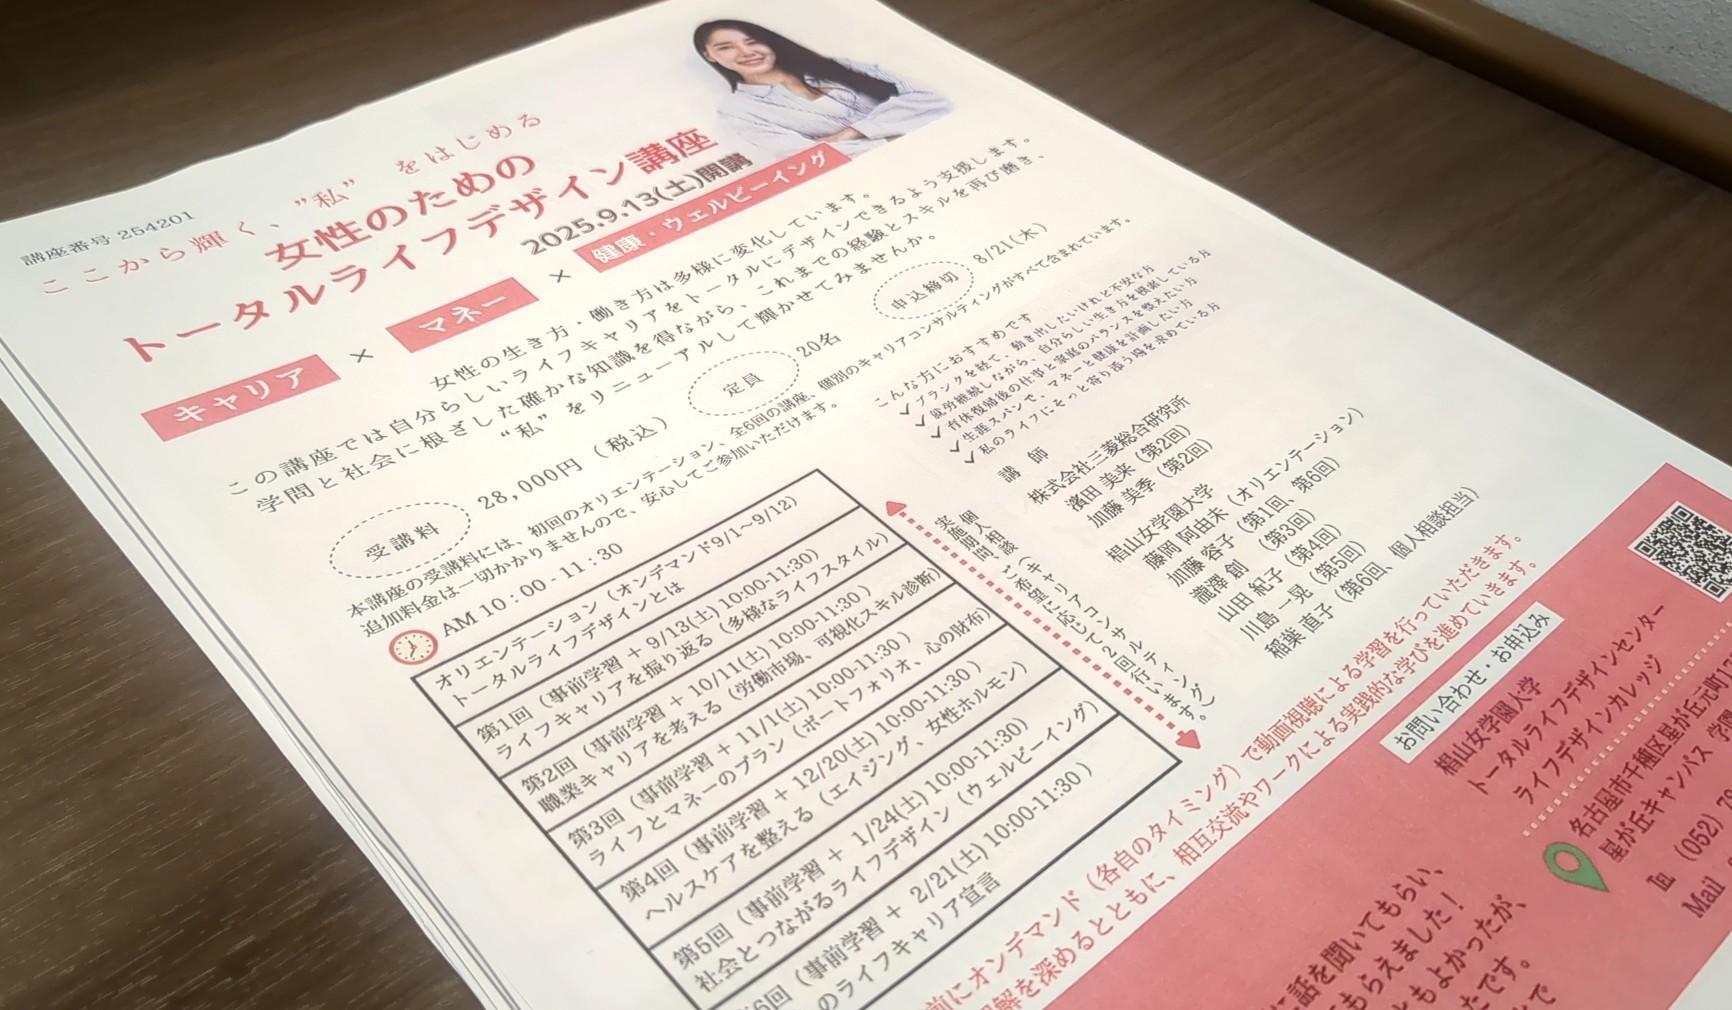 講座番号 254201
ここから輝く、"私" をはじめる
女性のための
トータルライフデザイン講座
2025.9.13(土)開講
キャリア × マネー × 健康・ウェルビーイング
女性の生き方・働き方は多様に変化しています。
この講座では自分らしいライフキャリアをトータルにデザインできるよう支援します。
学問と社会に根ざした確かな知識を得ながら、これまでの経験とスキルを再び磨き、
"私"をリニューアルして輝かせてみませんか。
受講料 28,000円(税込) 定員 20名 申込締切 8/21(木)
本講座の受講料には、初回のオリエンテーション、全6回の講座、個別のキャリアコンサルティングがすべて含まれています。
追加料金は一切かかりませんので、安心してご参加いただけます。
AM 10:00-11:30
オリエンテーション(オンデマンド9/1~9/12)
トータルライフデザインとは
第1回(事前学習 + 9/13(土) 10:00-11:30)
ライフキャリアを振り返る(多様なライフスタイル)
第2回(事前学習 + 10/11(土) 10:00-11:30)
職業キャリアを考える(労働市場、可視化スキル診断)
第3回(事前学習 + 11/1(土) 10:00-11:30)
ライフとマネーのプラン(ポートフォリオ、心の財布)
第4回(事前学習 + 12/20(土) 10:00-11:30)
ヘルスケアを整える(エイジング、女性ホルモン)
第5回(事前学習 + 1/24(土) 10:00-11:30)
社会とつながるライフデザイン(ウェルビーイング)
6回(事前学習 + 2/21(土) 10:00-11:30)
のライフキャリア宣言
個人相談(キャリアコンサルティング)
実施期間 ご希望に応じて2回行います。
こんな方におすすめです
✓ブランクを経て、動き出したいけれど不安な方
✓就労継続しながら、自分らしい生き方を模索している方
✓育休復帰後の仕事と家庭のバランスを整えたい方
✓生涯スパンで、マネーと健康を計画したい方
✓私のライフにそっと寄り添う場を求めている方
講師
株式会社三菱総合研究所
濱田 美来(第2回)
加藤 美季(第2回)
椙山女学園大学
藤岡 阿由未(オリエンテーション)
加藤 容子(第1回、第6回)
瀧澤 創(第3回)
山田 紀子(第4回)
川島 一晃(第5回)
稲葉 直子(第6回、個人相談担当)
前にオンデマンド(各自のタイミング)で動画視聴による学習を行っていただきます。
解を深めるとともに、相互交流やワークによる実践的な学びを進めていきます。
お問い合わせ・お申込み
椙山女学園大学
トータルライフデザインセンター
ライフデザインカレッジ
名古屋市千種区星が丘元町17
星が丘キャンパス 学園
℡ (052) 7
Mail
に話を聞いてもらい、
もらえました!
ともよかったが、
たです。
で